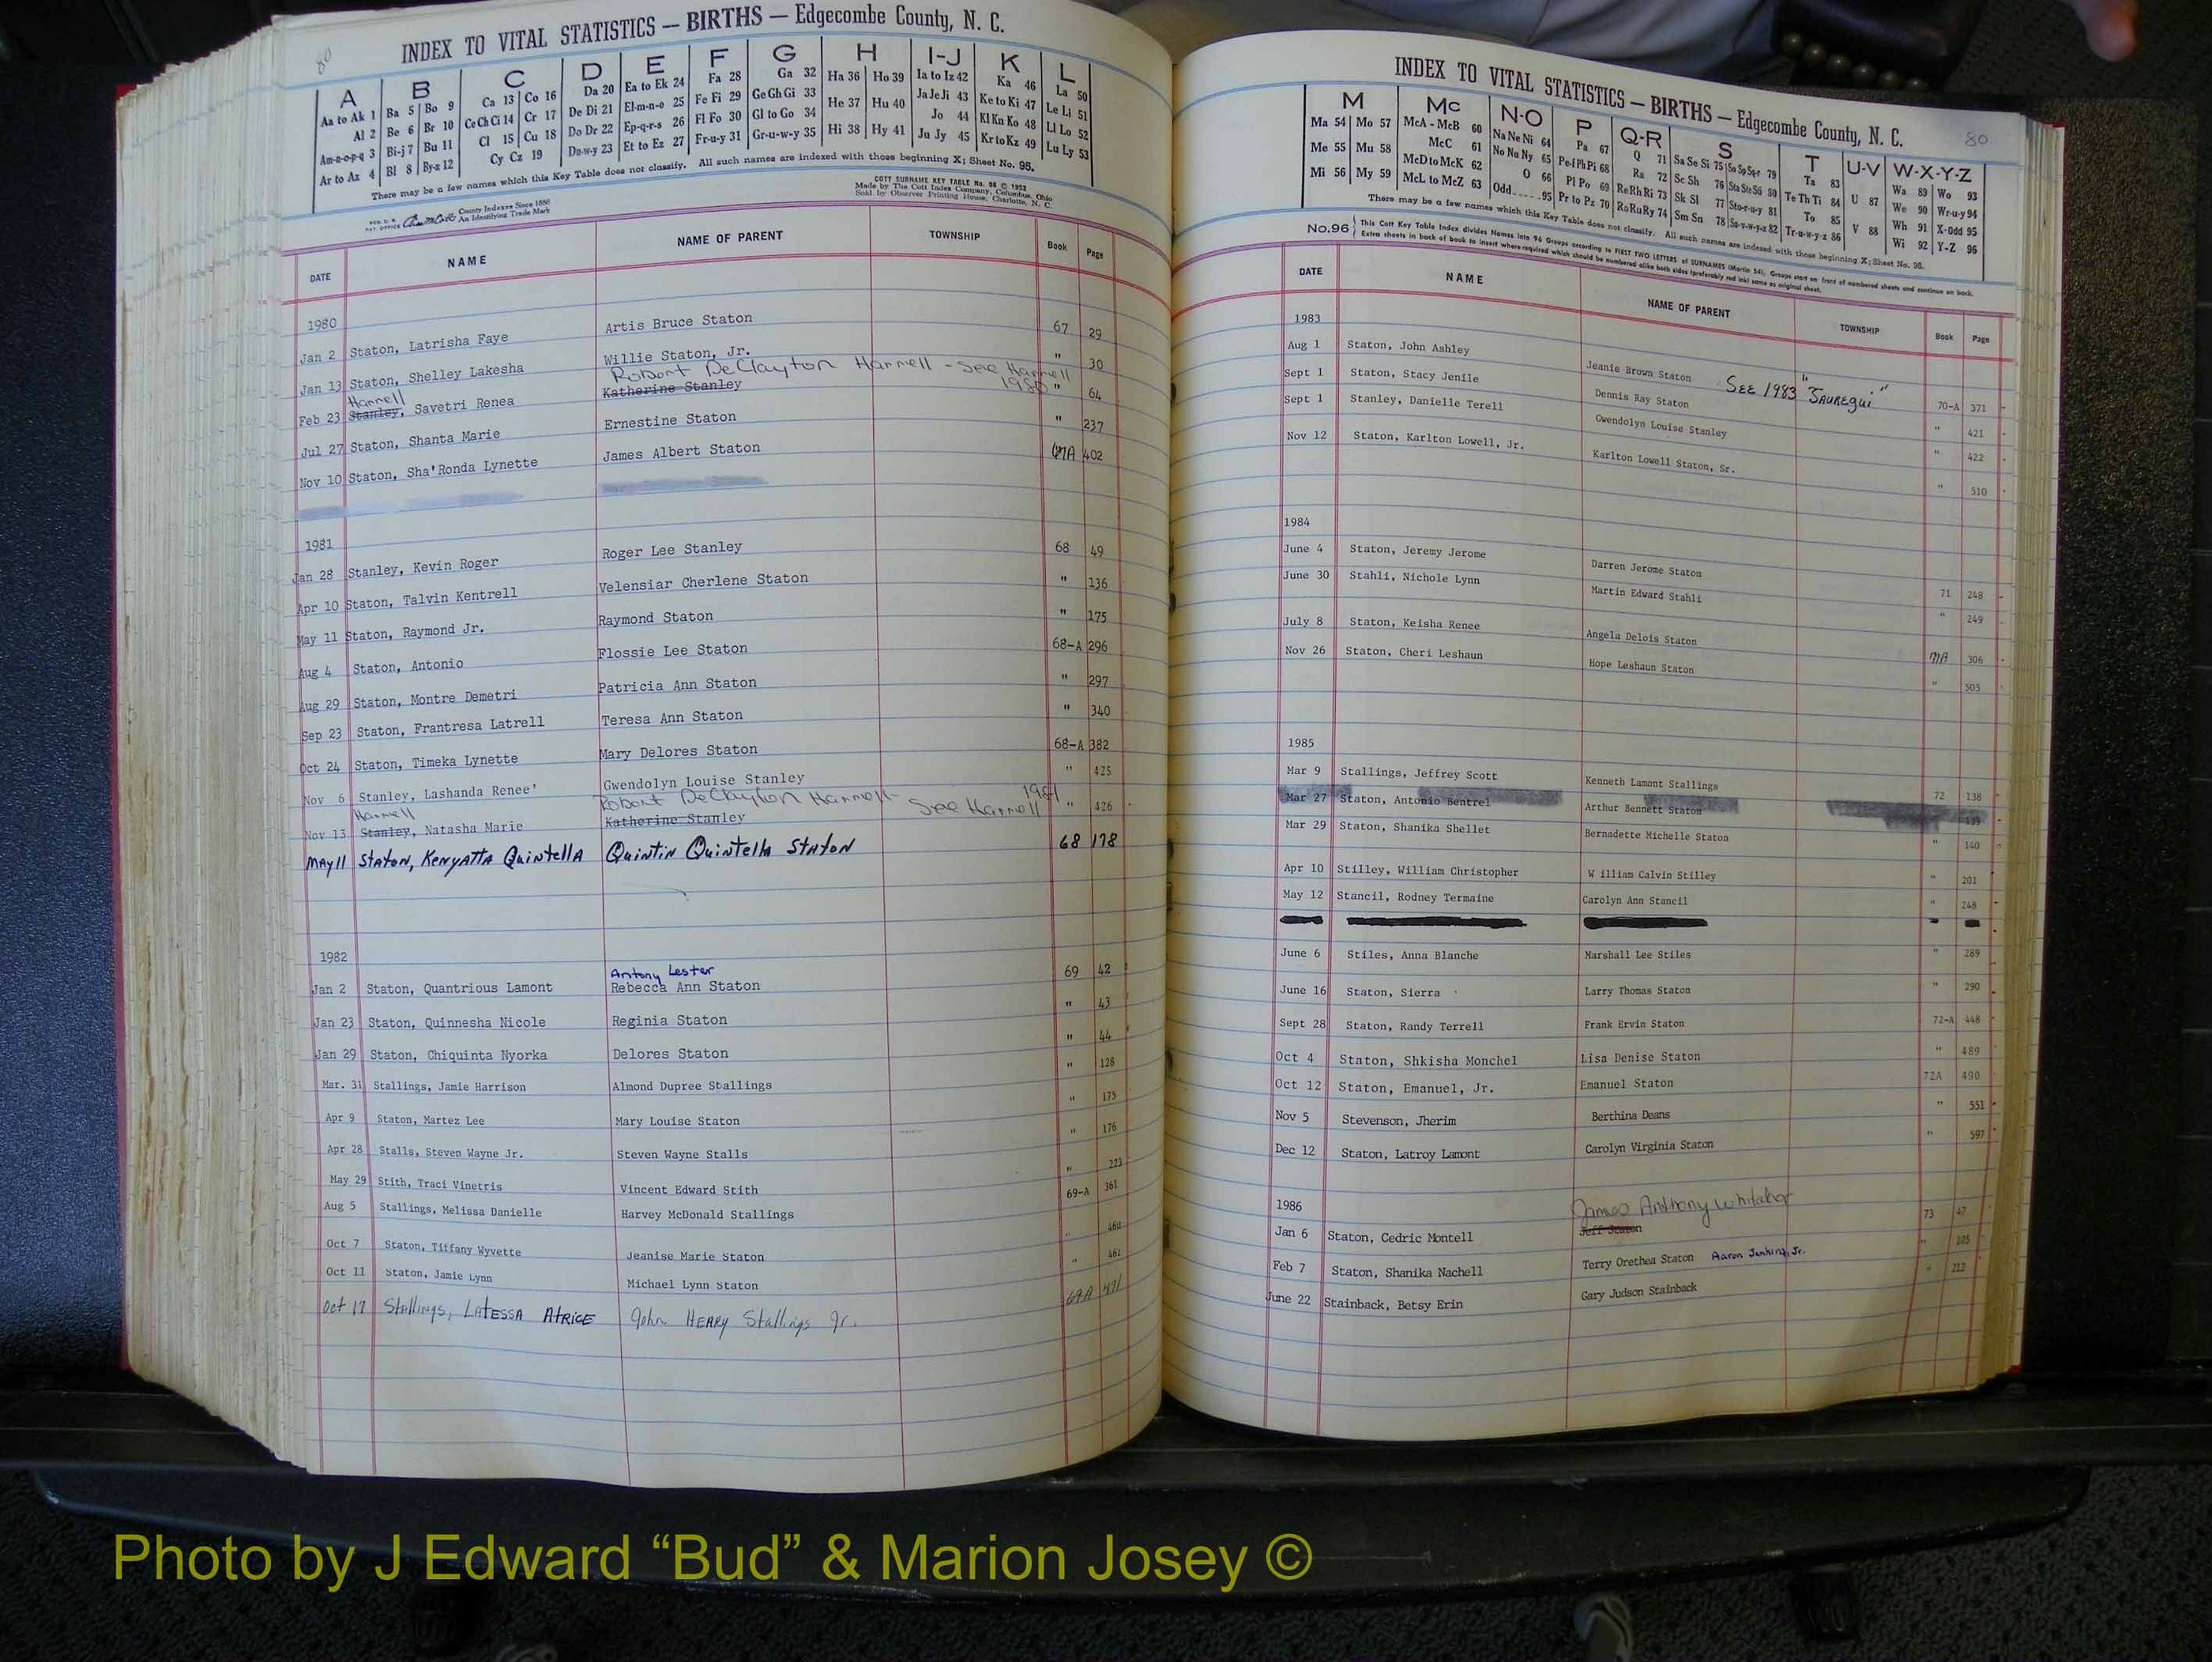 80
INDEX TO VITAL STATISTICS — BIRTHS — Edgecombe County, N. C.
A B C D E F G H I-J K L
Aa to Ak 1 Ba 5 Bo 9 Ca 13 Co 16 Da 20 Ea to Ek 24 Fa 28 Ga 32 Ha 36 Ho 39 Ia to Iz 42 Ka 46 La 50
Al 2 Be 6 Br 10 Ce Ch Ci 14 Cr 17 De Di 21 El-m-n-o 25 Fe Fi 29 Ge Gh Gi 33 He 37 Hu 40 Ja Je Ji 43 Ke to Ki 47 Le Li 51
Am-n-o-p-q 3 Bi-j 7 Bu 11 Cl 15 Cu 18 Do Dr 22 Ep-q-r-s 26 Fl Fo 30 Gl to Go 34 Hi 38 Hy 41 Jo 44 Kl Kn Ko 48 Ll Lo 52
Ar to Az 4 Bl 8 By-z 12 Cy Cz 19 Du-w-y 23 Et to Ez 27 Fr-u-y 31 Gr-u-w-y 35 Ju Jy 45 Kr to Kz 49 Lu Ly 53
There may be a few names which this Key Table does not classify. All such names are indexed with those beginning X; Sheet No. 95.
County Indexes Since 1888
An Identifying Trade Mark
COTT SURNAME KEY TABLE No. 96 © 1952
Made by The Cott Index Company, Columbus, Ohio
Sold by Observer Printing House, Charlotte, N. C.
DATE NAME NAME OF PARENT TOWNSHIP Book Page
1980
Jan 2 Staton, Latrisha Faye Artis Bruce Staton 67 29
Jan 13 Staton, Shelley Lakesha Willie Staton, Jr. " 30
Harrell Robert DeClayton Harrell - See Harrell 1980
Feb 23 Stanley, Savetri Renea Katherine Stanley " 64
Jul 27 Staton, Shanta Marie Ernestine Staton " 237
Nov 10 Staton, Sha'Ronda Lynette James Albert Staton 67A 402
1981
Jan 28 Stanley, Kevin Roger Roger Lee Stanley 68 49
Apr 10 Staton, Talvin Kentrell Velensiar Cherlene Staton " 136
May 11 Staton, Raymond Jr. Raymond Staton " 175
Aug 4 Staton, Antonio Flossie Lee Staton 68-A 296
Aug 29 Staton, Montre Demetri Patricia Ann Staton " 297
Sep 23 Staton, Frantresa Latrell Teresa Ann Staton " 340
Oct 24 Staton, Timeka Lynette Mary Delores Staton 68-A 382
Nov 6 Stanley, Lashanda Renee' Gwendolyn Louise Stanley " 425
Harrell Robert DeClayton Harrell - See Harrell 1981
Nov 13 Stanley, Natasha Marie Katherine Stanley " 426
May 11 Staton, Kenyatta Quintella Quintin Quintella Staton 68 178
1982
Antony Lester
Jan 2 Staton, Quantrious Lamont Rebecca Ann Staton 69 42
Jan 23 Staton, Quinnesha Nicole Reginia Staton " 43
Jan 29 Staton, Chiquinta Nyorka Delores Staton " 44
Mar. 31 Stallings, Jamie Harrison Almond Dupree Stallings " 128
Apr 9 Staton, Martez Lee Mary Louise Staton " 175
Apr 28 Stalls, Steven Wayne Jr. Steven Wayne Stalls " 176
May 29 Stith, Traci Vinetris Vincent Edward Stith " 223
Aug 5 Stallings, Melissa Danielle Harvey McDonald Stallings 69-A 361
Oct 7 Staton, Tiffany Wyvette Jeanise Marie Staton " 460
Oct 11 Staton, Jamie Lynn Michael Lynn Staton " 461
Oct 17 Stallings, LaTessa Atrice John Henry Stallings Jr. 69A 471
INDEX TO VITAL STATISTICS — BIRTHS — Edgecombe County, N. C.
80
M Mc N-O P Q-R S T U-V W-X-Y-Z
Ma 54 Mo 57 McA - McB 60 Na Ne Ni 64 Pa 67 Q 71 Sa Se Si 75 So Sp Sq-r 79 Ta 83 U 87 Wa 89 Wo 93
Me 55 Mu 58 McC 61 No Nu Ny 65 Pe-f Ph Pi 68 Ra 72 Sc Sh 76 Sta Ste Sti 80 Te Th Ti 84 V 88 We 90 Wr-u-y 94
Mi 56 My 59 McD to McK 62 O 66 Pl Po 69 Re Rh Ri 73 Sk Sl 77 Sto-r-u-y 81 To 85 Wh 91 X-Odd 95
McL to McZ 63 Odd 95 Pr to Pz 70 Ro Ru Ry 74 Sm Sn 78 Su-v-w-y-z 82 Tr-u-w-y-z 86 Wi 92 Y-Z 96
There may be a few names which this Key Table does not classify. All such names are indexed with those beginning X; Sheet No. 95.
No.96 This Cott Key Table Index divides Names into 96 Groups according to FIRST TWO LETTERS of SURNAMES (Martin 54). Groups start on front of numbered sheets and continue on back.
Extra sheets in back of book to insert where required which should be numbered alike both sides (preferably red ink) same as original sheet.
DATE NAME NAME OF PARENT TOWNSHIP Book Page
1983
Aug 1 Staton, John Ashley Jeanie Brown Staton See 1983 "Jauregui" 70-A 371
Sept 1 Staton, Stacy Jenile Dennis Ray Staton " 421
Sept 1 Stanley, Danielle Terell Gwendolyn Louise Stanley " 422
Nov 12 Staton, Karlton Lowell, Jr. Karlton Lowell Staton, Sr. " 510
1984
June 4 Staton, Jeremy Jerome Darren Jerome Staton 71 248
June 30 Stahli, Nichole Lynn Martin Edward Stahli " 249
July 8 Staton, Keisha Renee Angela Delois Staton 71A 306
Nov 26 Staton, Cheri Leshaun Hope Leshaun Staton " 505
1985
Mar 9 Stallings, Jeffrey Scott Kenneth Lamont Stallings 72 138
Mar 27 Staton, Antonio Bentrel Arthur Bennett Staton 139
Mar 29 Staton, Shanika Shellet Bernadette Michelle Staton " 140
Apr 10 Stilley, William Christopher W illiam Calvin Stilley " 201
May 12 Stancil, Rodney Termaine Carolyn Ann Stancil " 248
June 6 Stiles, Anna Blanche Marshall Lee Stiles " 289
June 16 Staton, Sierra Larry Thomas Staton " 290
Sept 28 Staton, Randy Terrell Frank Ervin Staton 72-A 448
Oct 4 Staton, Shkisha Monchel Lisa Denise Staton " 489
Oct 12 Staton, Emanuel, Jr. Emanuel Staton 72A 490
Nov 5 Stevenson, Jherim Berthina Deans " 551
Dec 12 Staton, Latroy Lamont Carolyn Virginia Staton " 597
1986
James Anthony Whitaker
Jan 6 Staton, Cedric Montell Jeff Staton 73 47
Feb 7 Staton, Shanika Nachell Terry Orethea Staton Aaron Jenkins, Jr. " 105
June 22 Stainback, Betsy Erin Gary Judson Stainback " 212
Photo by J Edward “Bud” & Marion Josey ©